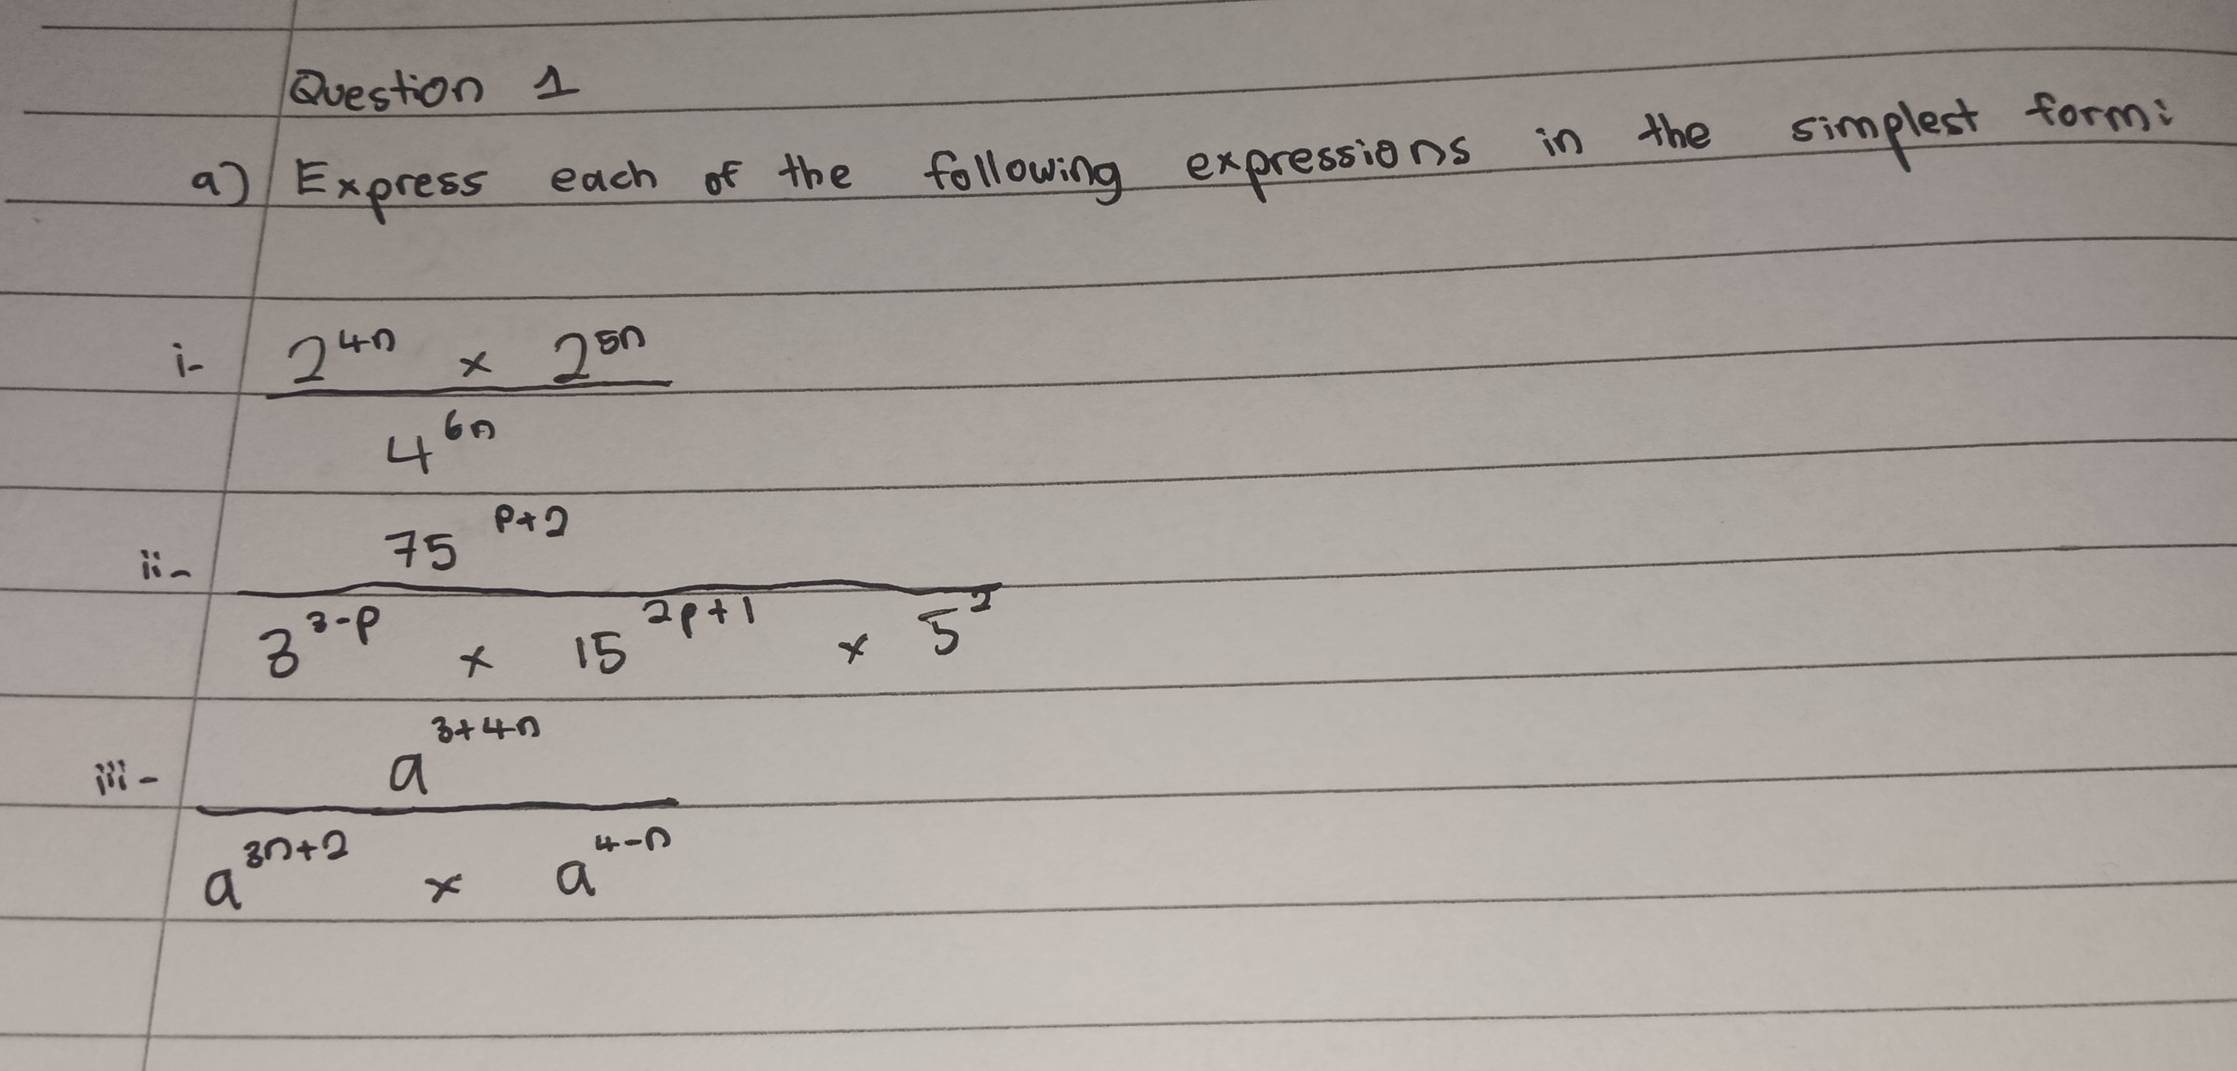 Question 1
a) Express each of the following expressions in the simplest form:
i- 2^{4n} × 2^{5n}
4^{6n}
ii- 75^{p+2}
3^{3-p} × 15^{2p+1} × 5^{2}
iii- a^{3+4n}
a^{3n+2} × a^{4-n}